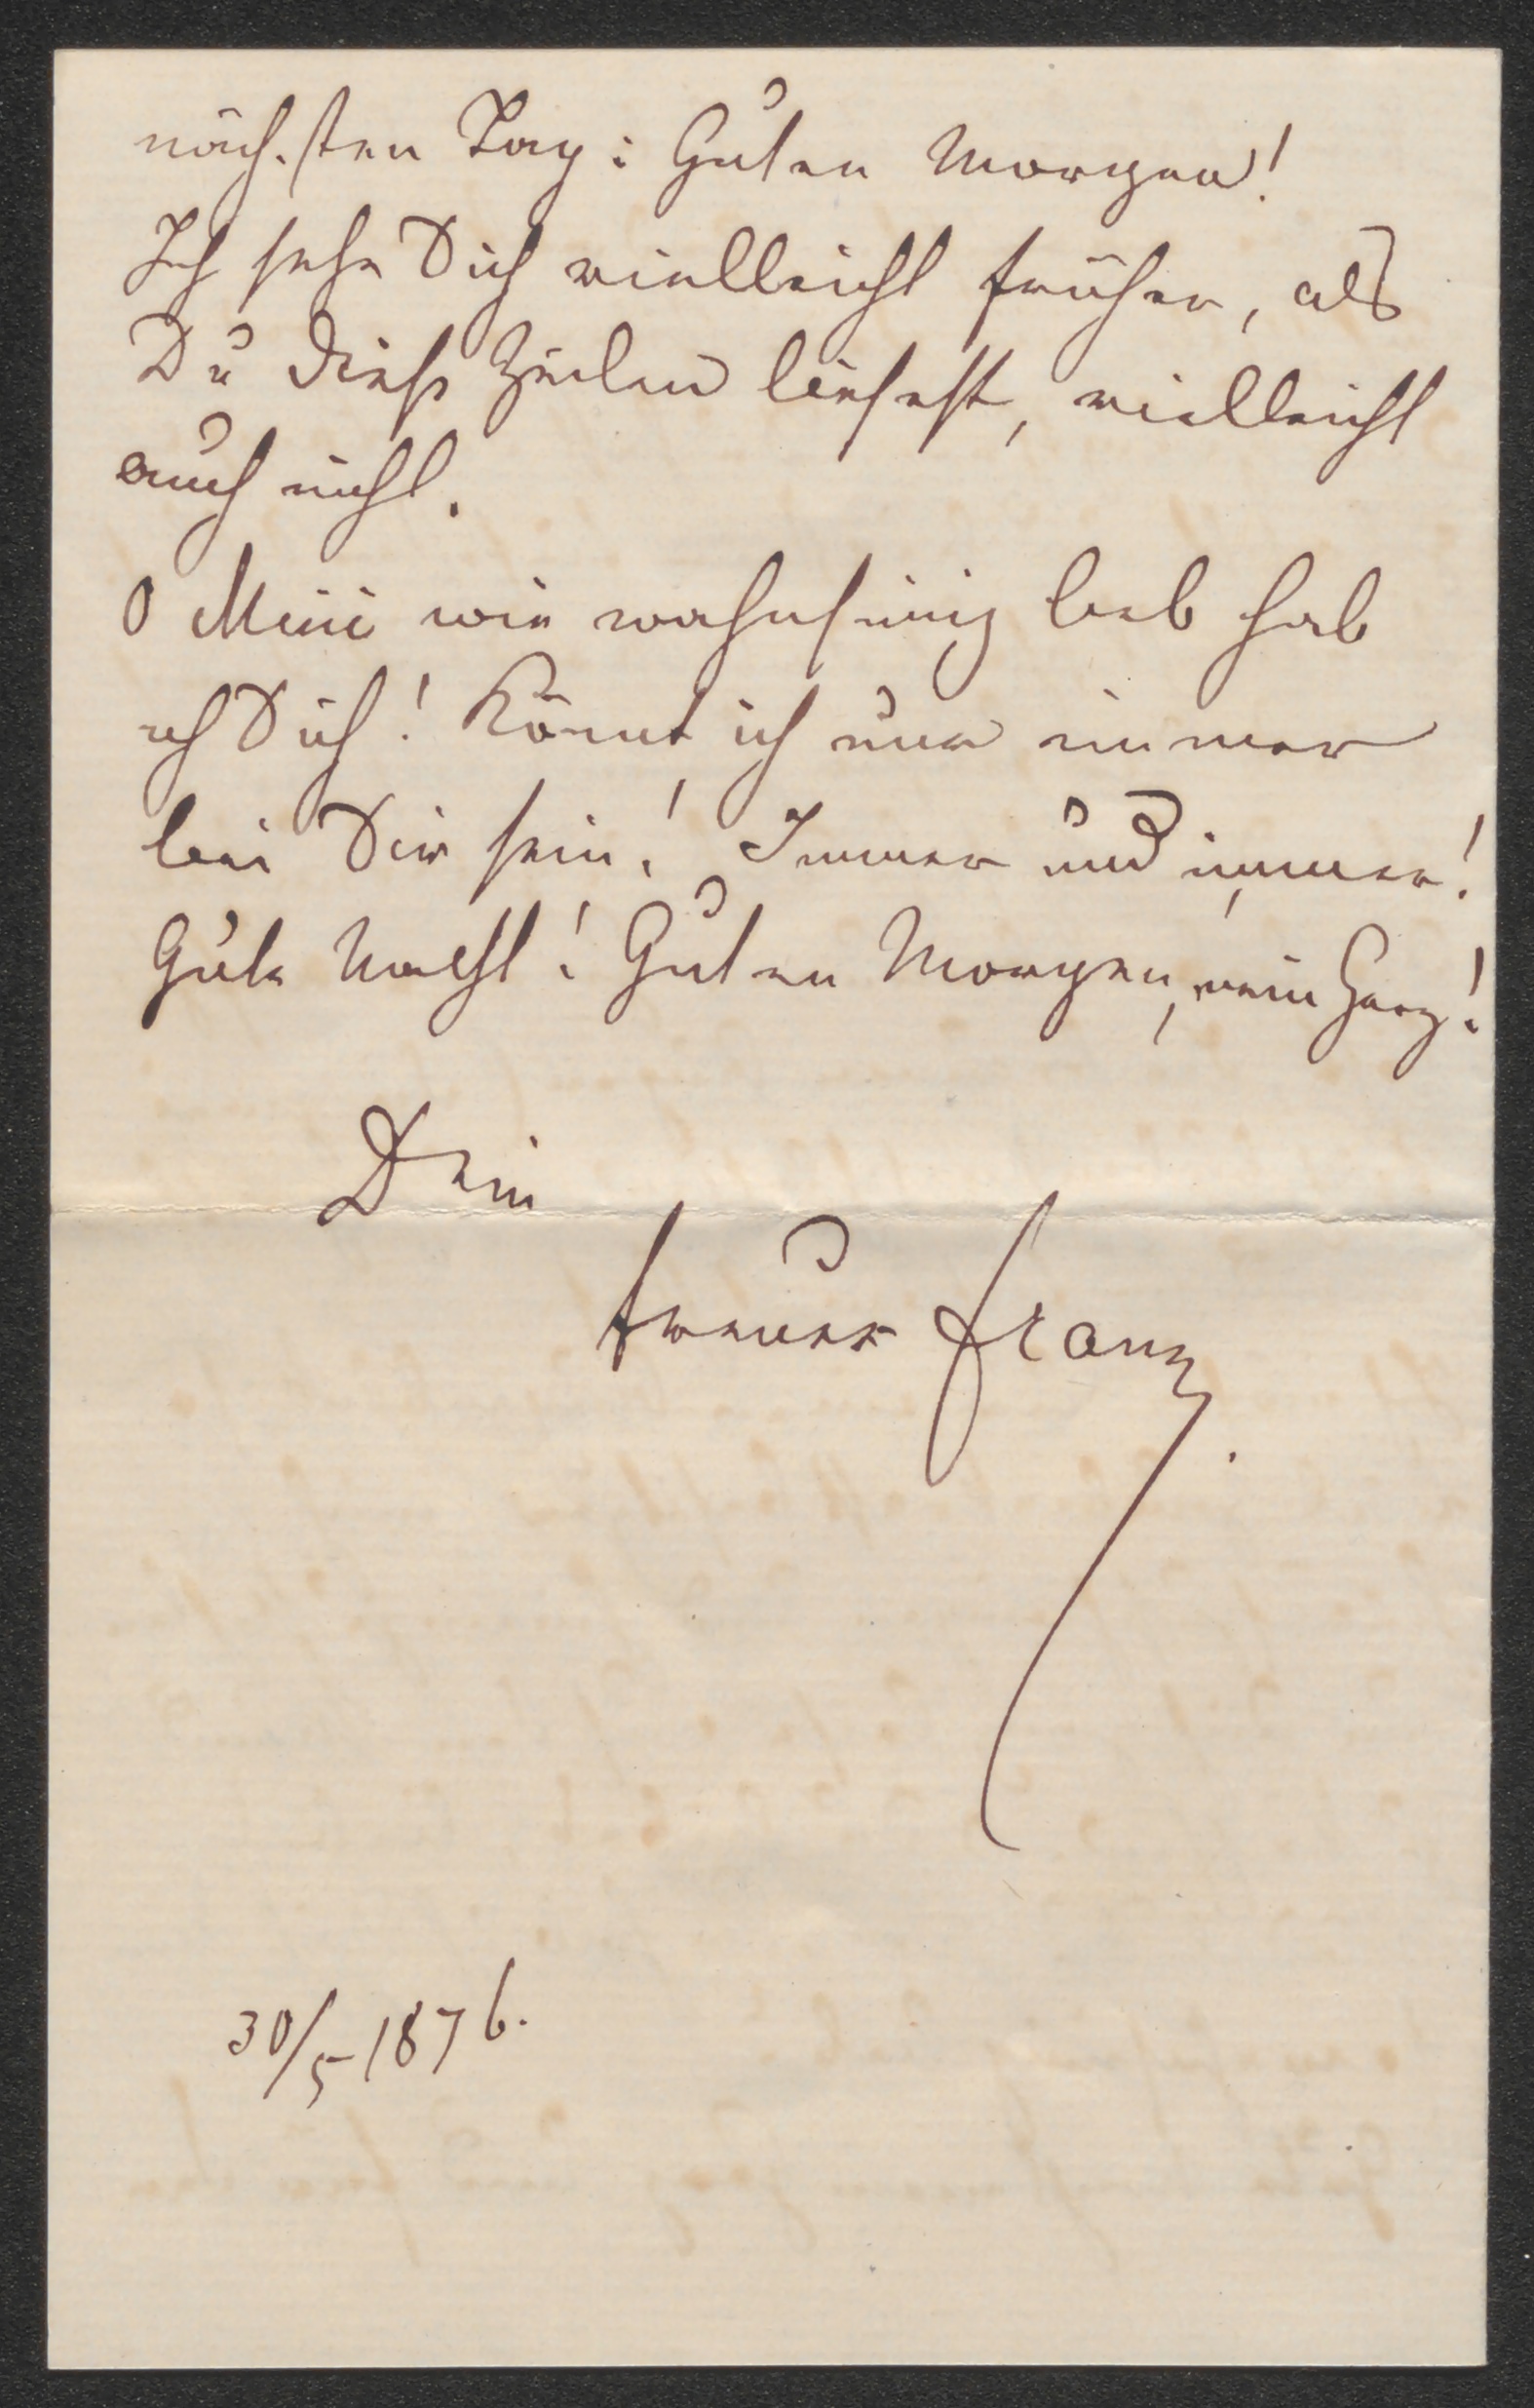 nächsten Tag: Guten Morgen!
Ich sehe Dich vielleicht früher, als
Du diese Zeilen liesest, vielleicht
auch nicht.
O Mini wie wahnsinnig lieb hab
ich Dich! Könnt ich nur immer
bei Dir sein! Immer und immer!
Gute Nacht! Guten Morgen, mein Herz!
Dein
treuer Franz.
30/5 1876.